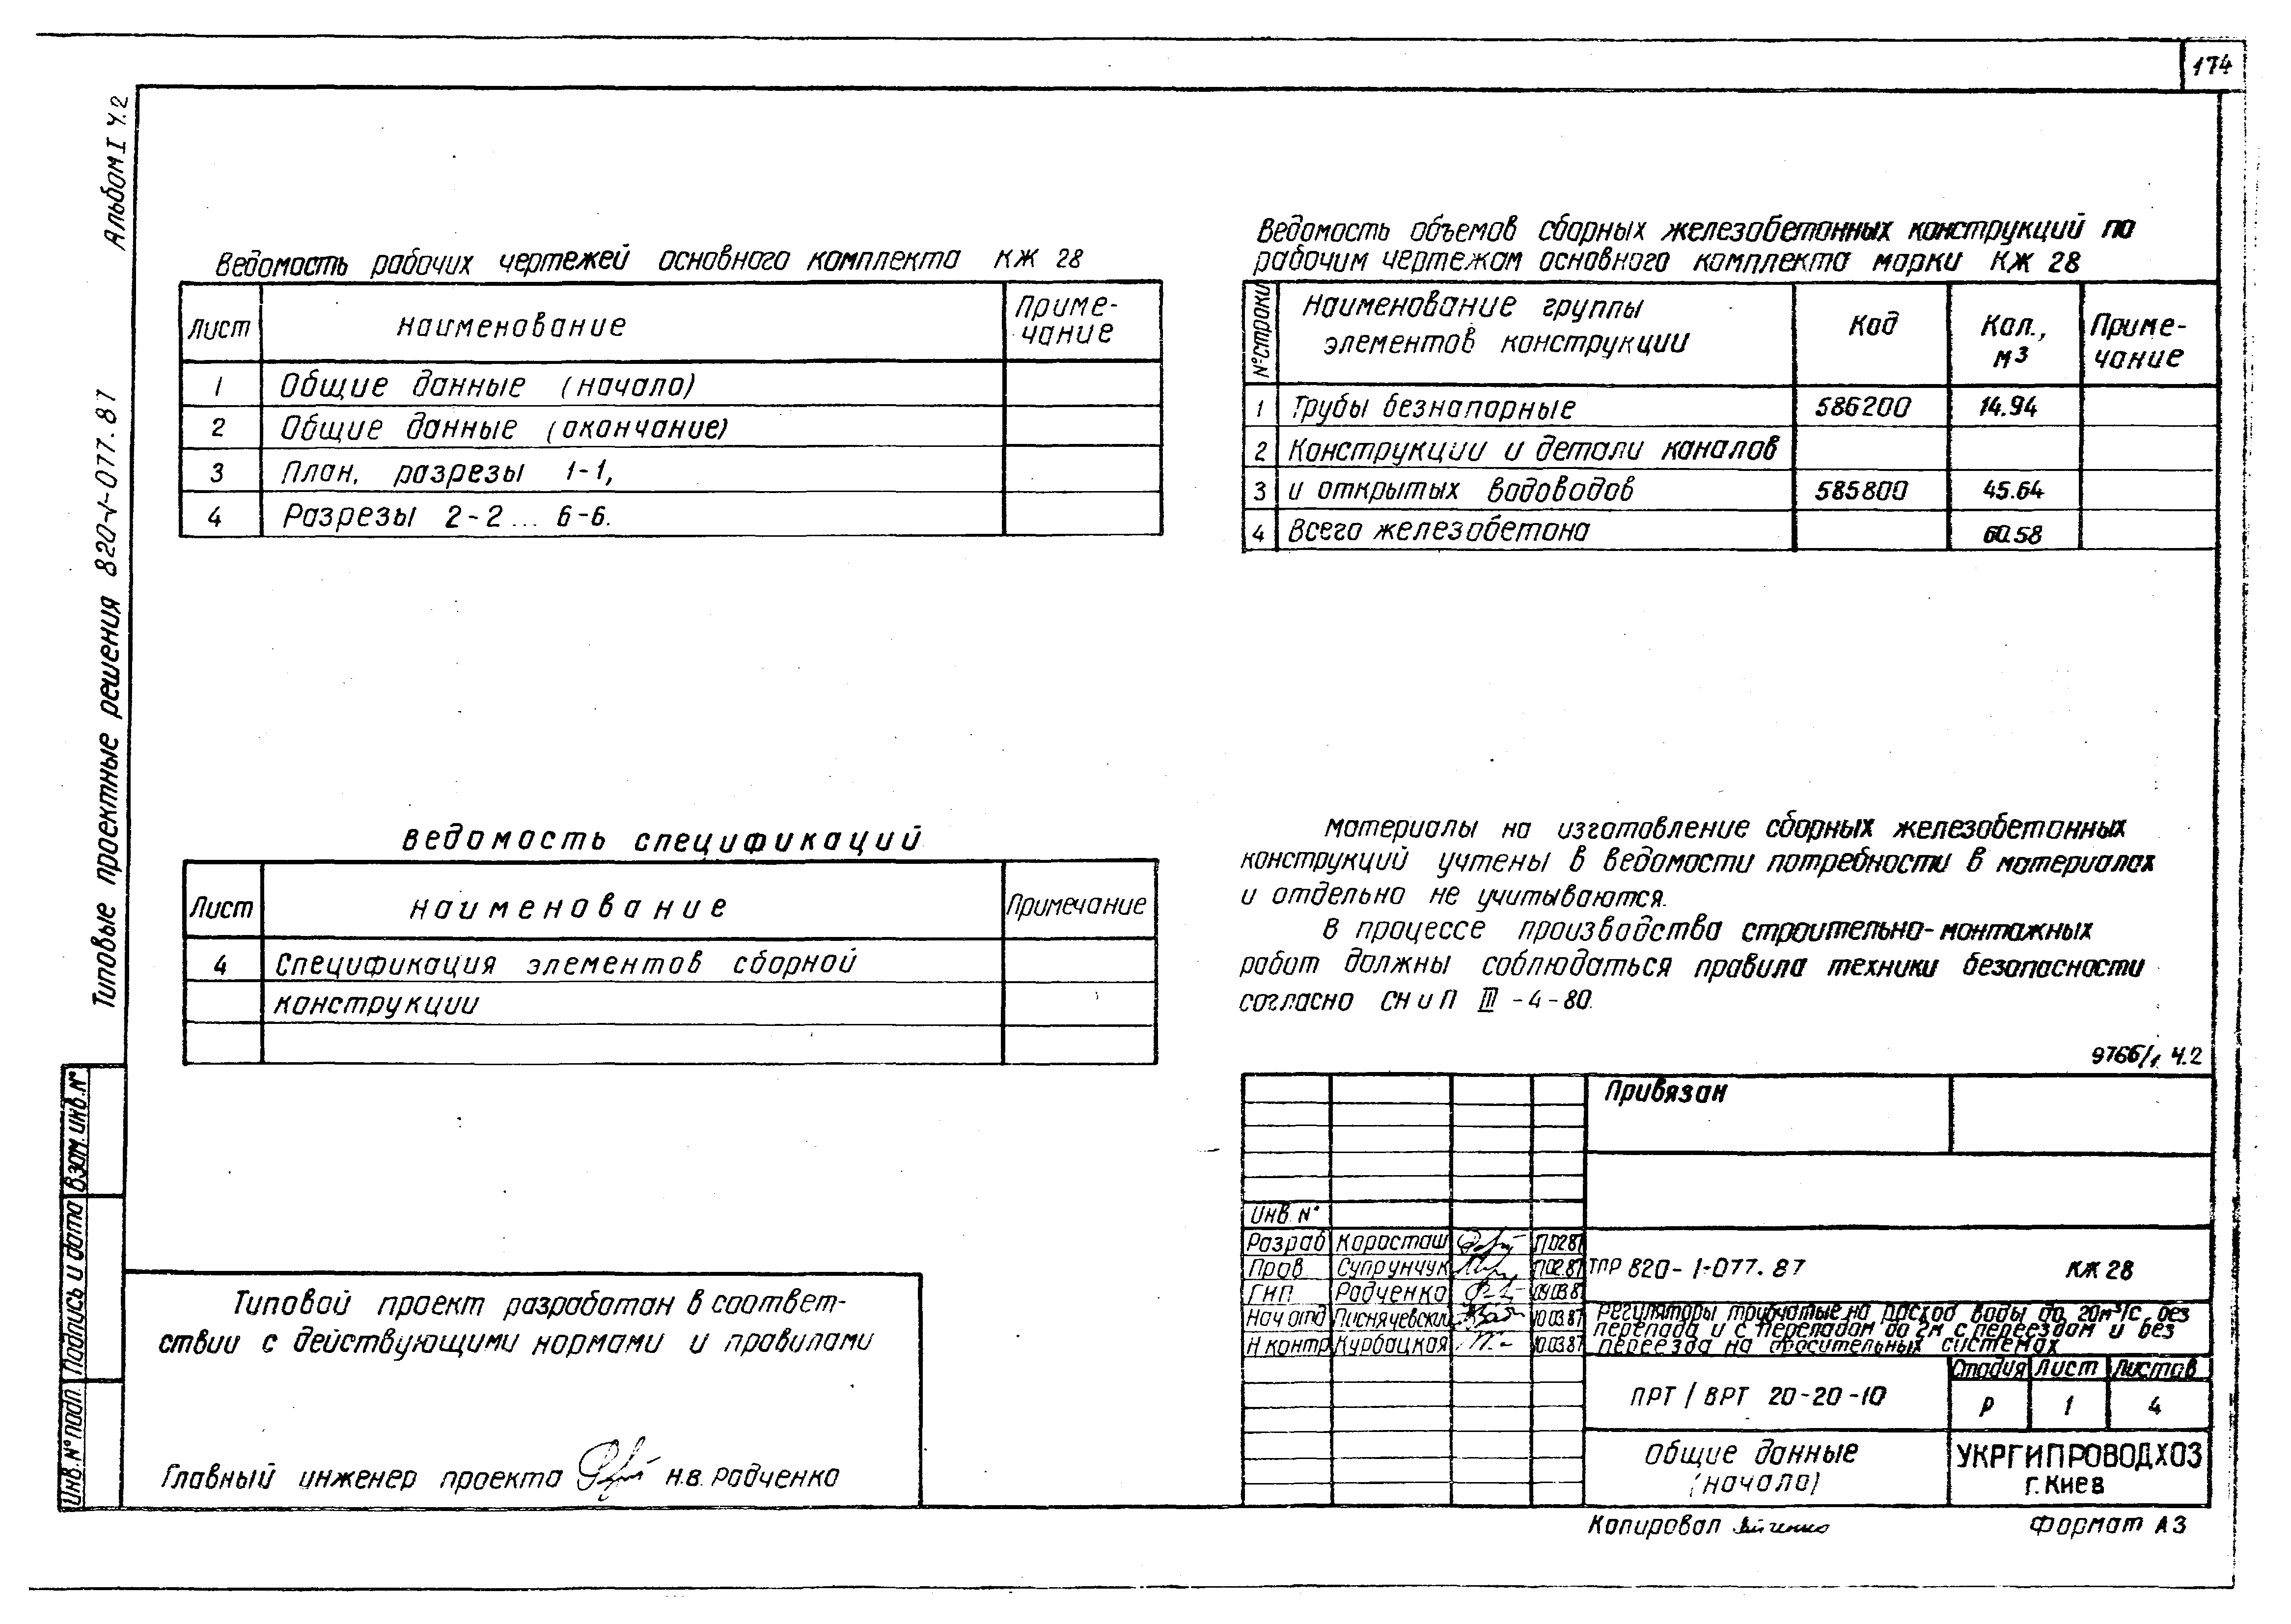 174
Альбом I ч.2
Типовые проектные решения 820-1-077.87
Ведомость рабочих чертежей основного комплекта КЖ 28
Лист Наименование Приме-
чание
1 Общие данные (начало)
2 Общие данные (окончание)
3 План, разрезы 1-1,
4 Разрезы 2-2 ... 6-6.
Ведомость объемов сборных железобетонных конструкций по
рабочим чертежам основного комплекта марки КЖ 28
№ строки Наименование группы
элементов конструкции Код Кол.,
м3 Приме-
чание
1 Трубы безнапорные 586200 14.94
2 Конструкции и детали каналов
3 и открытых водоводов 585800 45.64
4 Всего железобетона 60.58
Ведомость спецификаций
Лист Наименование Примечание
4 Спецификация элементов сборной
конструкции
Материалы на изготовление сборных железобетонных
конструкций учтены в ведомости потребности в материалах
и отдельно не учитываются.
В процессе производства строительно-монтажных
работ должны соблюдаться правила техники безопасности
согласно СНиП III-4-80.
9766/1 ч.2
Привязан
Инв. №
Разраб Коросташ 17.02.87
Пров. Супрунчук 17.02.87
ГИП Радченко 09.03.87
Нач отд Писнячевский 10.03.87
Н контр Курбацкая 10.03.87
ТПР 820-1-077.87 КЖ 28
Регуляторы трубчатые на расход воды до 20м³/с, без
перепада и с перепадом до 2м с переездом и без
переезда на оросительных системах
ПРТ / ВРТ 20-20-10
Стадия Лист Листов
Р 1 4
Общие данные
(начало)
УКРГИПРОВОДХОЗ
г. Киев
Копировал
Формат А3
Типовой проект разработан в соответ-
ствии с действующими нормами и правилами
Главный инженер проекта Н.В. Радченко
Взам. инв. №
Подпись и дата
Инв. № подл.